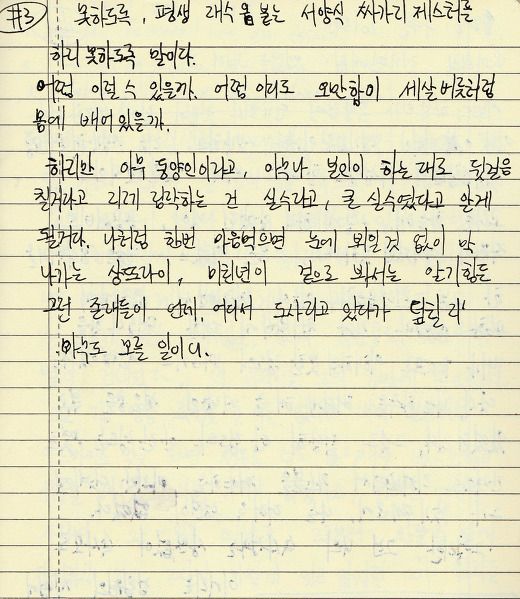 #3
못하도록, 평생 재수 옴 붙는 서양식 싸가리 제스터를
하리 못하도록 말이다.
어쩜 이럴 수 있을까. 어쩜 이리도 오만함이 세살버릇처럼
몸에 배어있을까.
하리만 아무 동양인이라고, 아무나 본인이 하는대로 뒷걸음
칠거라고 리레 짐작하는 건 실수라고, 큰 실수였다고 알게
될거다. 나처럼 한번 마음먹으면 눈에 뵈일 것 없이 막
나가는 상또라이, 미친년이 겉으로 봐서는 알기힘든
그런 존재들이 언제, 어디서 도사리고 있다가 덮칠 리
아무도 모를 일이다.